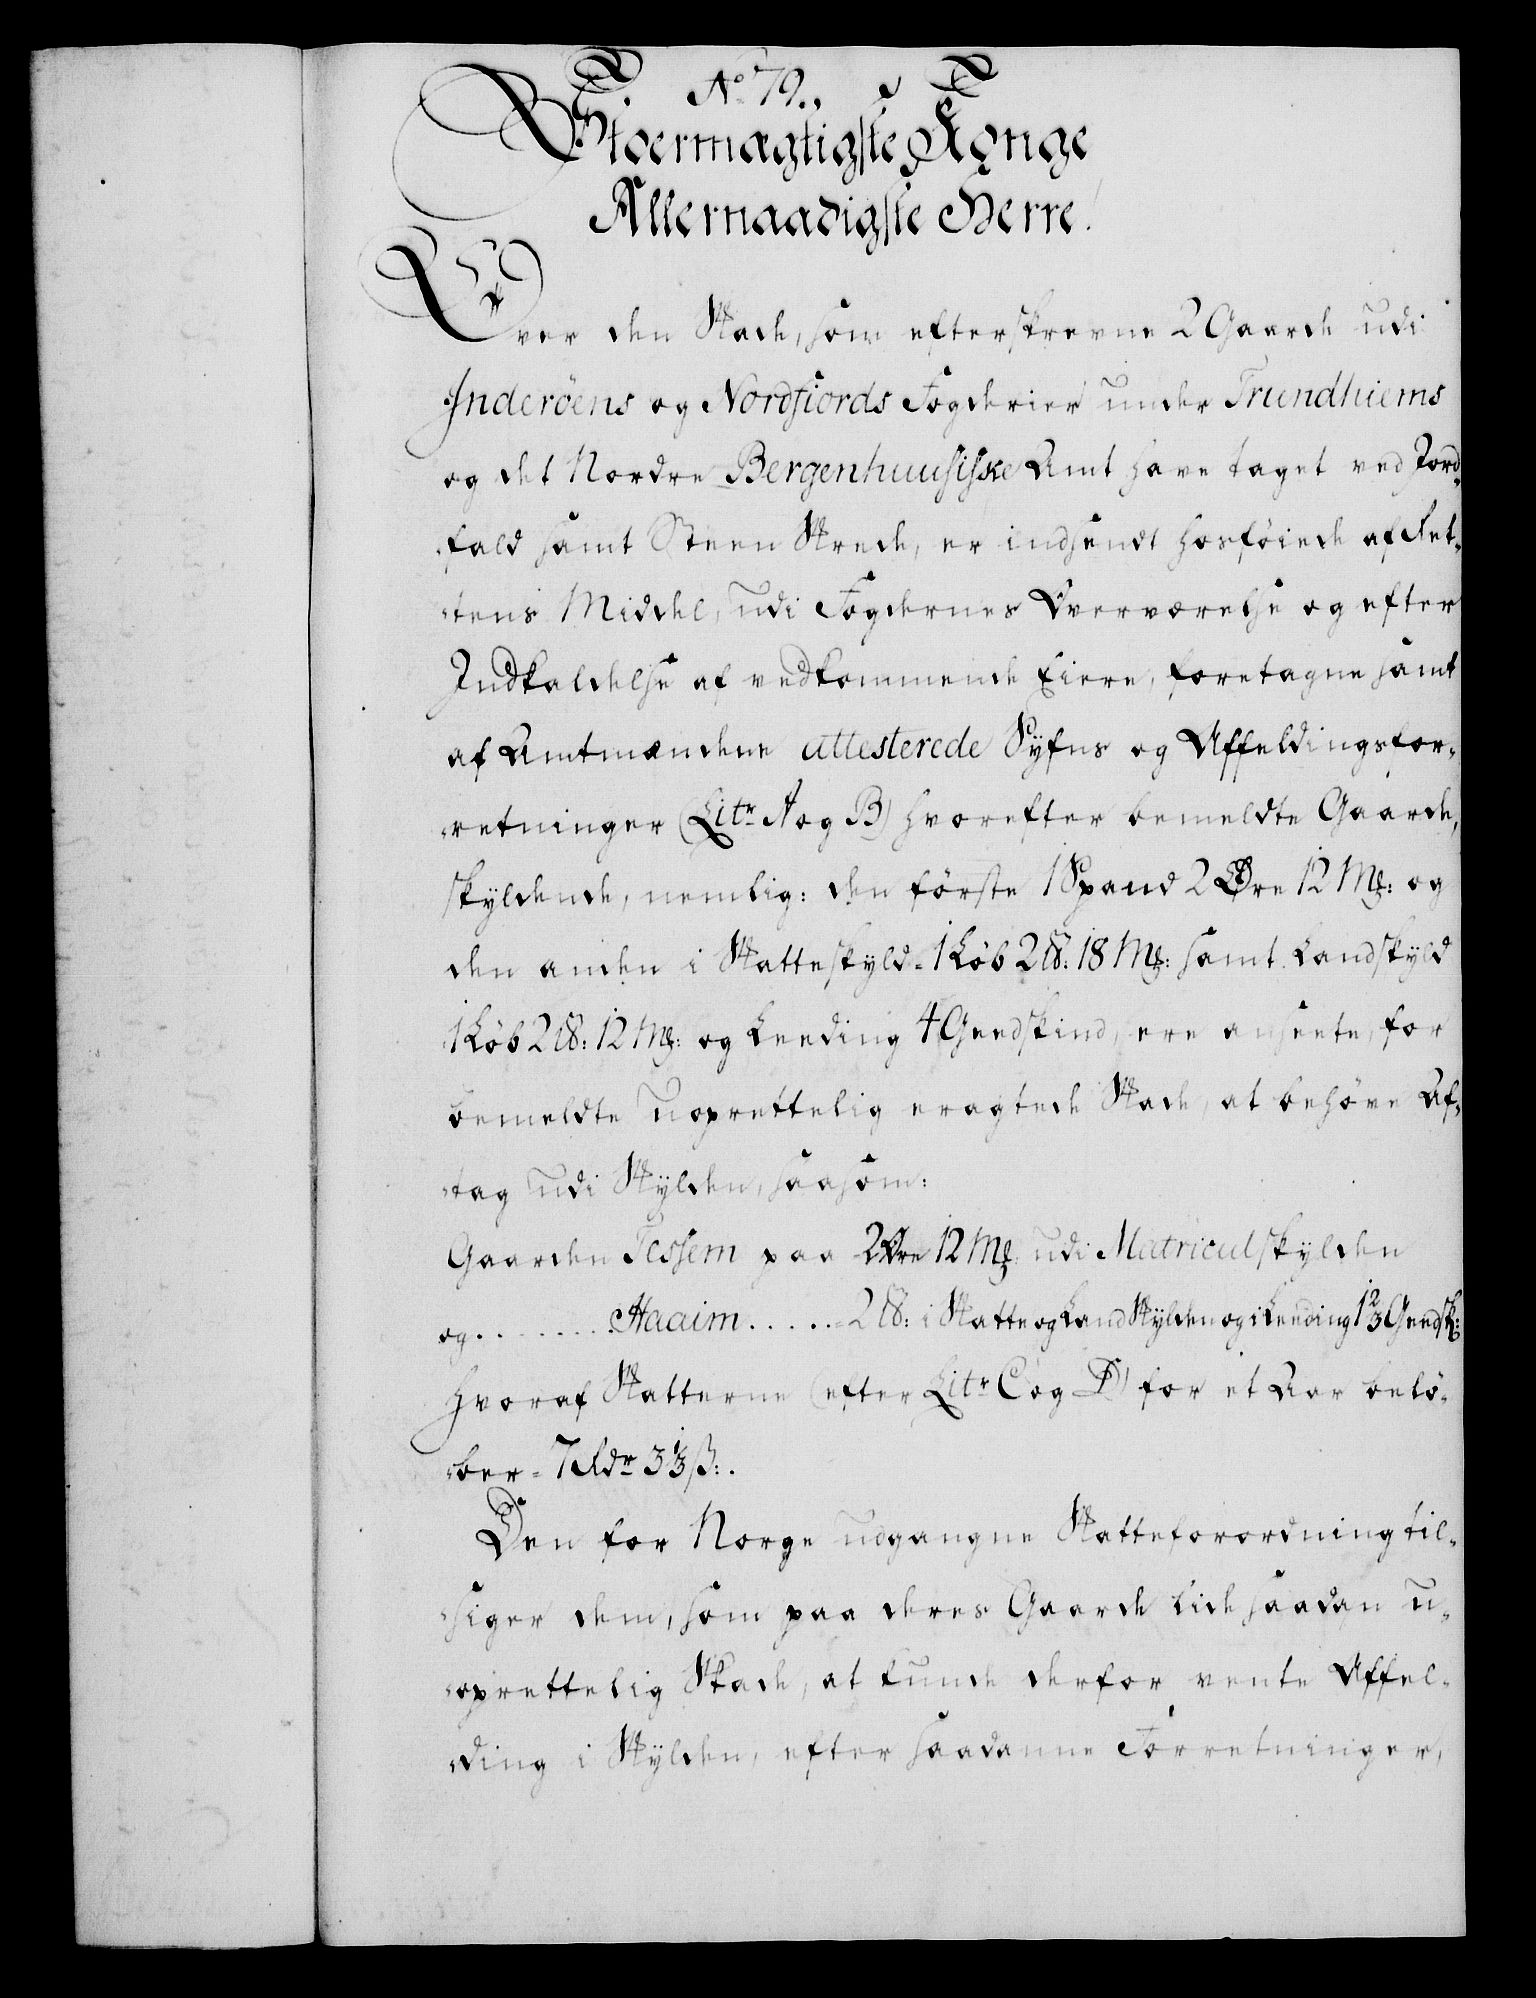 No 79.
Stoermægtigste Konge
Allernaadigste Herre!
Over den Skade, som efterskrevne 2 Gaarde udi
Inderöens og Nordfiords Fogderier under Trundhiems
og det Nordre Bergenhuusiske Amt have taget ved Jord-
fald samt Steen Skrede, er indsendt hosföiede af Ret-
tens Middel, udi Fogdernes Overværelse og efter
Indkaldelse af vedkommende Eiere, foretagne samt
af Amtmændene attesterede Syfns og Affeldingsfor-
retninger (Litr A og B) hvorefter bemeldte Gaarde,
skyldende, nemlig: den förste 1 Spand 2 Øre 12 Mg: og
den anden i Skatteskyld - 1 Løb 2 ℔: 18 Mg: samt Landskyld
1 Løb 2 ℔: 12 Mg: og Leeding 4 Geedskind, ere anseete, for
bemeldte uoprettelig eragtede Skade, at behøve Af-
tag udi Skylden, saasom:
Gaarden Tessem paa 2 Øre 12 Mg udi Matriculskylden
og . . . . . . . . Haaim . . . . . - 2 ℔: i Skatte og Land Skylden og i Leeding 1 2/3 Geedsk:
hvoraf Skatterne (efter Litr C og D) for et Aar belö-
ber - 7 Rdr 3 1/3 ß: .
Den for Norge udgangne Skatteforordning til-
siger dem, som paa deres Gaarde lide saadan u-
oprettelig Skade, at kunde derfor vente Affel-
ding i Skylden, efter saadanne Forretninger,